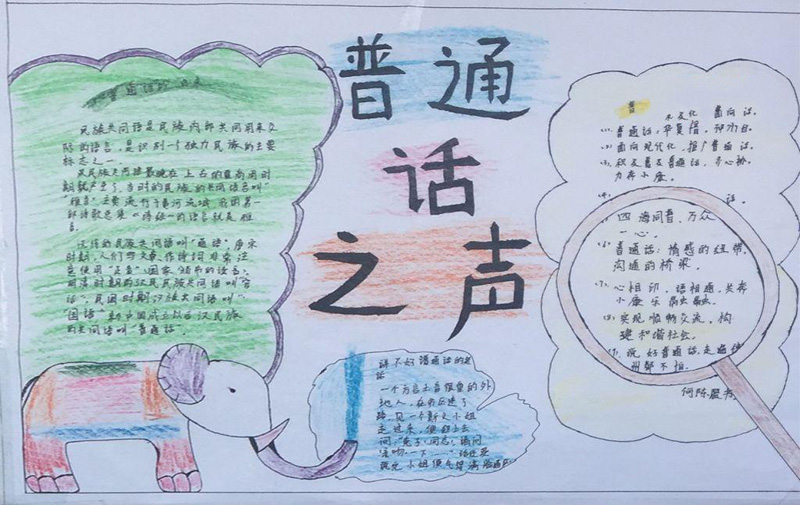 普通
话
之声
普通话的
民族共同语是民族内部共同用来交
际的语言，是识别一个独立民族的主要
标志之一。
汉民族共同语最晚在上古的夏商周时
期就产生了，当时的民族的共同语名叫"
雅言"主要流行于黄河流域，我国第一
部诗歌总集《诗经》的语言就是雅
言。
汉代的民族共同语叫"通语"，唐宋
时期，人们写文章、作诗词非常注
意使用"正音"（国家颁布的读音）
明清时期的汉民族共同语叫"官
话"，民国时期汉族共同语叫"
国语"，新中国成立以后汉民族
的共同语叫"普通话"。
讲不好普通话的笑
话
一个方言土音很重的外
地人，在
见一个
走过来，便赶上去
问："同志，请问
一下……"话还
小姐便
普
文化 面向
普通话，华夏情，
面向现代化，推广普通话。
积极普及普通话，齐心协
力奔小康。
话。
四海同音，万众
一心。
普通话：情感的纽带，
沟通的桥梁。
心相印，语相通，共奔
小康乐融融。
实现顺畅交流，构
建和谐社会。
说好普通话，走遍神
州都不怕。